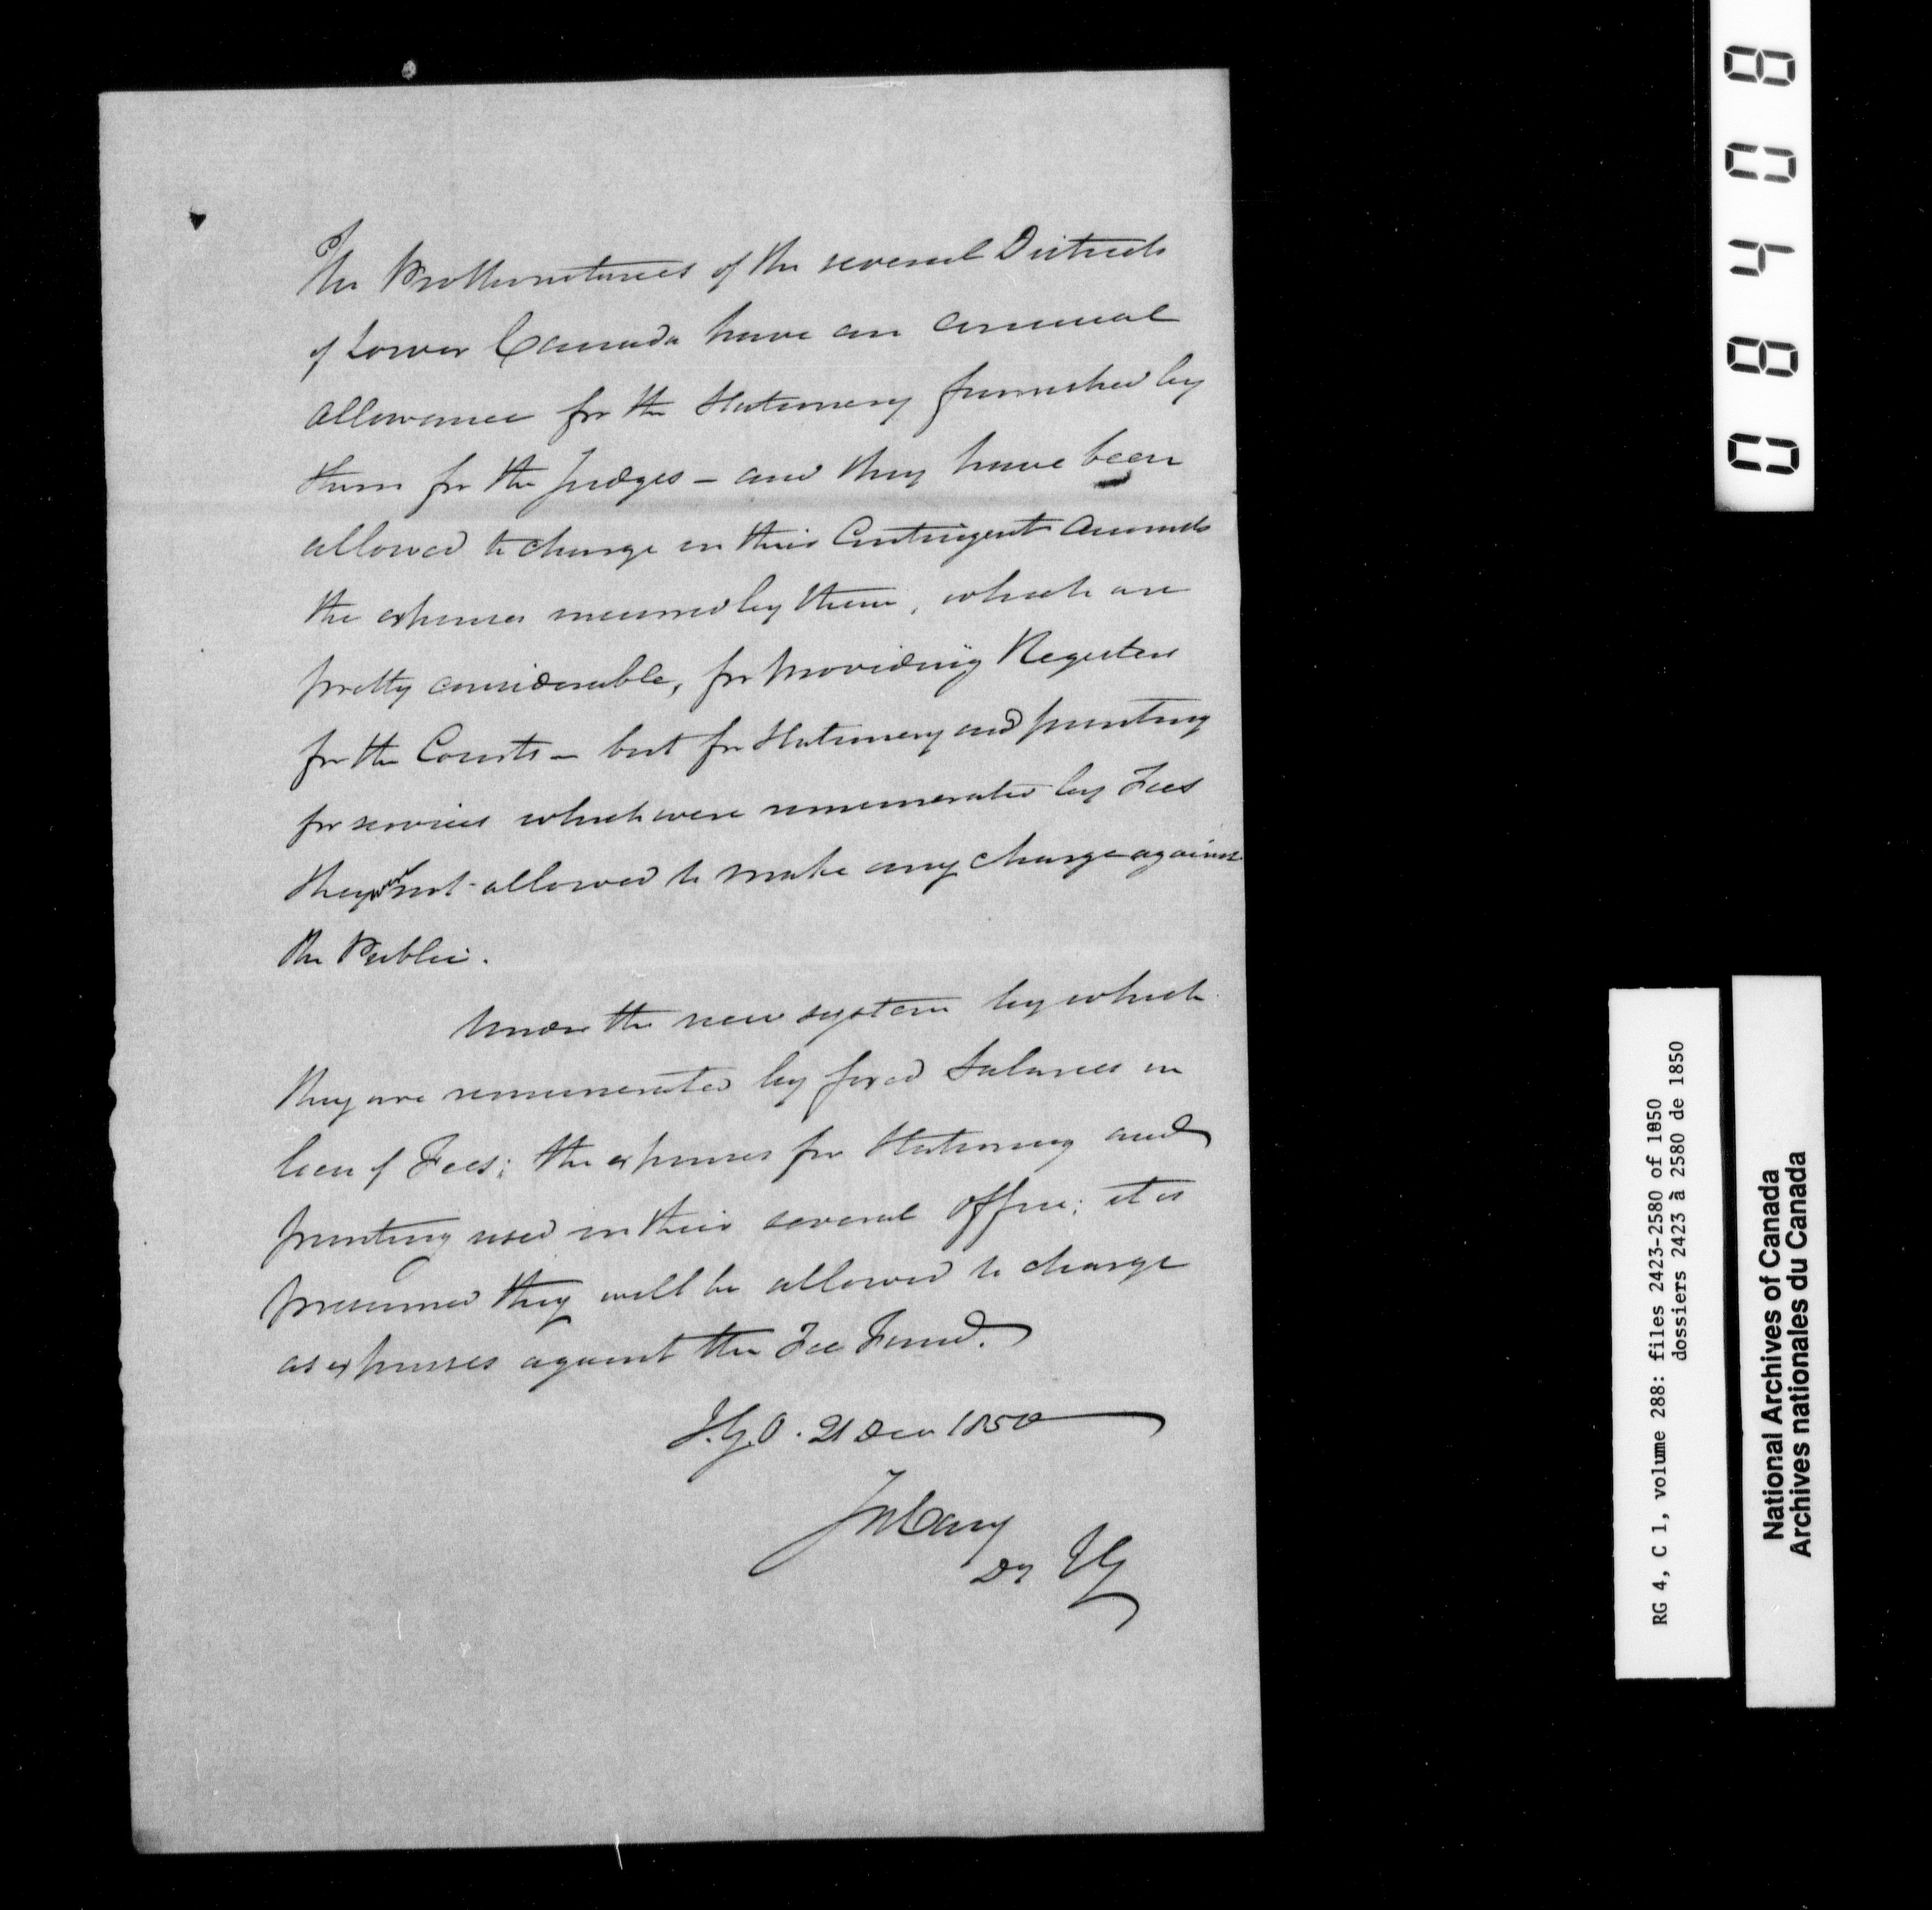 The Prothonotaries of the several Districts
of Lower Canada have an annual
allowance for the Stationery furnished by
them for the Judges – and they have been
allowed to charge in their Contingent Accounts
the expenses incurred by them, which are
pretty considerable, for providing Registers
for the Courts – but for Stationery and printing
for services which were remunerated by Fees
they not allowed to make any charge against
the Public.
Under the new system by which
they are remunerated by fixed Salaries in
lieu of Fees; the expenses for Stationery and
printing used in their several office; it is
presumed they will be allowed to charge
as expenses against the Fee Fund.
I.G.O. 21 Dec 1850
J Cary
Dy IG
08408
RG 4, C 1, volume 288: files 2423-2580 of 1850
dossiers 2423 à 2580 de 1850
National Archives of Canada
Archives nationales du Canada